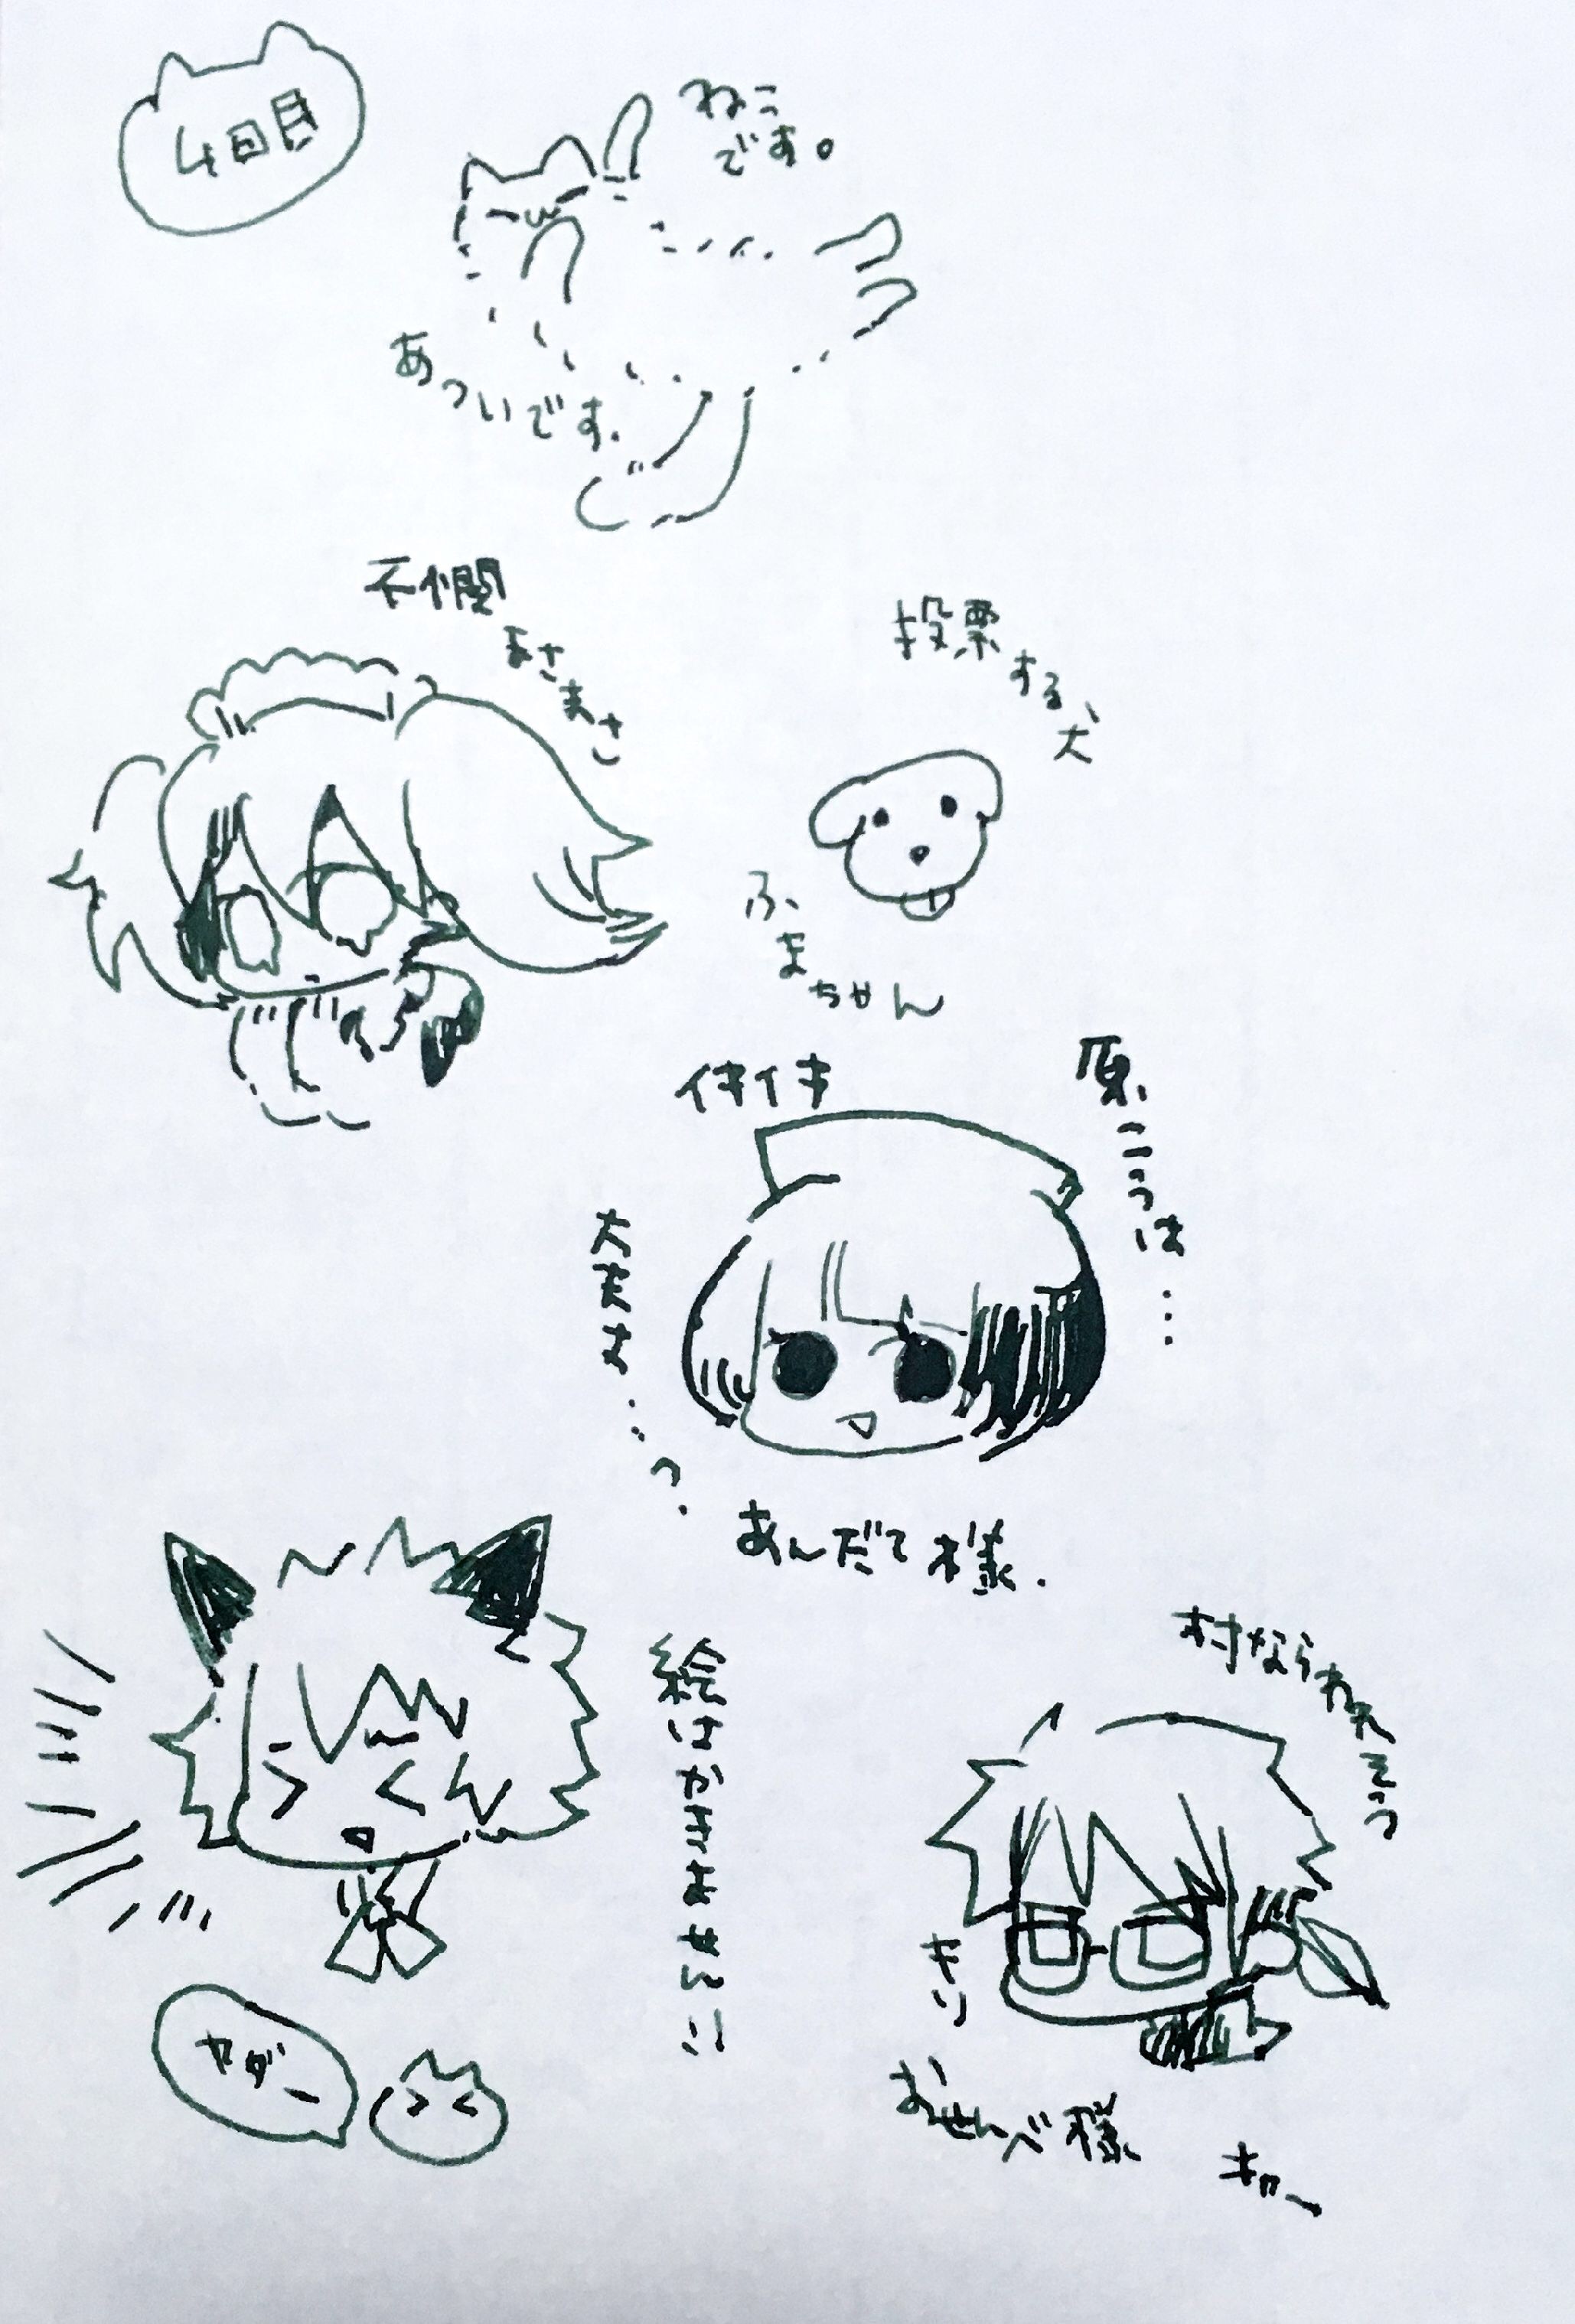 4回目
ねこ
です。
あついです.
不個間
まさまさ
投票する犬
ふまちゃん
イキイキ
大丈夫…?
あんだて様.
絵はかきません!!
村ならねえそう
キリ
おせんべ様
ヤダー